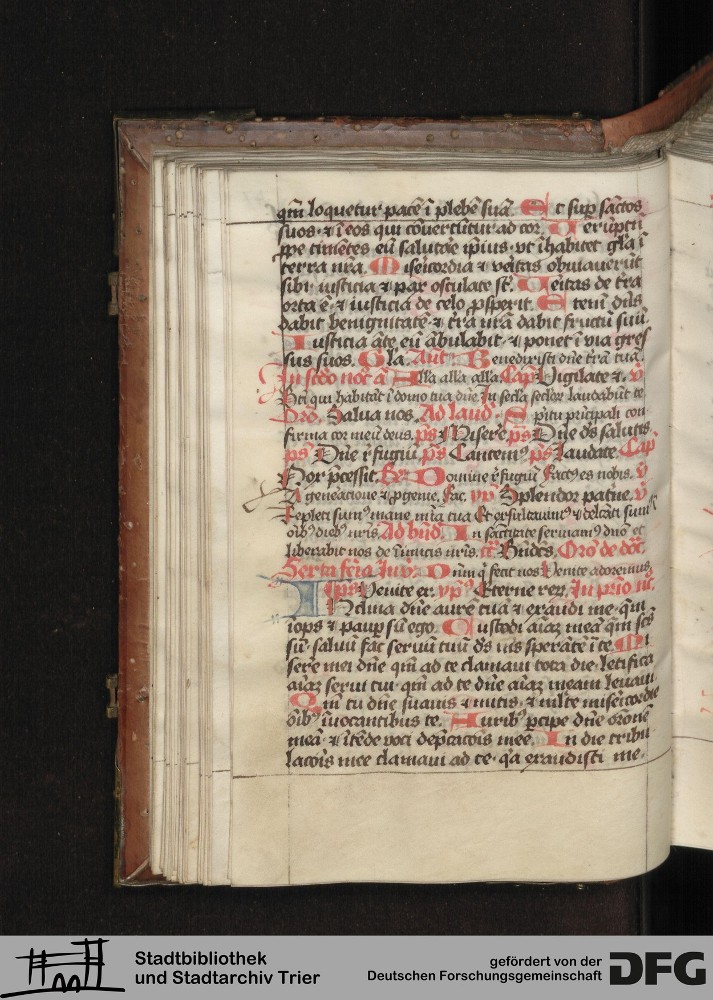 qm̄ loquetur pacē ī plebē suā. Et sup sāctos
suos ⁊ ī eos qui cōvertūtur ad cor. Verūptn̄
ꝓpe timētes eū salutare ipius ut īhabitet gl̄a ī
terra nra. Misericordia ⁊ veritas obviaverūt
sibi iusticia ⁊ pax osculate st̄. Veritas de tr̄a
orta ē ⁊ iusticia de celo ꝓspexit. Etenī dn̄s
dabit benignitatē ⁊ tr̄a nrā dabit fructū suū.
Iusticia āte eū ābulabit ⁊ ponet ī via gres
sus suos. Gl̄a. Ant̄ Benedixisti dn̄e tr̄ā tuā.
In scd̄o noc̄ a Alla alla alla. Cap̄ Vigilate ⁊. v̄
Bt̄i qui habitāt ī domo tua dn̄e In secl̄a seclor laudabūt te
Oro. Salva nos. Ad laud. Spiritu pricipali con
firma cor meū deus. ps Miserere ps Dn̄e ds̄ salutis
ps Dn̄e refugiū ps Cantemꝰ ps Laudate. Cap̄
Nox p̄cessit. Domine refugiū Factꝰ es nobis. v̄
A generacione ⁊ ꝓgenie. Fac. yp̄ Splendor patrne. v̄
Repleti sumꝰ mane mīa tua Et exsultavimꝰ ⁊ delcāti sumꝰ
oībꝰ diebꝰ nr̄is. Ad bn̄d. In sāctitate serviamꝰ dn̄o et
liberabit nos de īimicis nr̄is. Bn̄dcs. Oro de dōc̄.
Sexta feria Invi. Dn̄m q̄ fecit nos Venite adoremus.
ps Venite ex. yp̄s Eterne rex. In prīo nc̄.
Inclina dn̄e aurē tuā ⁊ exaudi me qm̄
īops ⁊ paup sū ego. Custodi aīaʒ meā qm̄ sc̄s
sū salvū fac servū tuū ds̄ ms̄ sperātē ī te. Mi
serere mei dn̄e qm̄ ad te clamavi tota die letifica
aīaʒ servi tui qm̄ ad te dn̄e aīaʒ meam levavi.
Qm̄ tu dn̄e suavis ⁊ mitis ⁊ mlt̄e misericordie
oībꝰ īvocantibus te. Auribꝰ ꝑcipe dn̄e oronē
meā ⁊ ītēde voci dep̄cacōis mee. In die tribu
lacōis mee clamavi ad te q̄a exaudisti me.
Stadtbibliothek
und Stadtarchiv Trier
gefördert von der
Deutschen Forschungsgemeinschaft
DFG